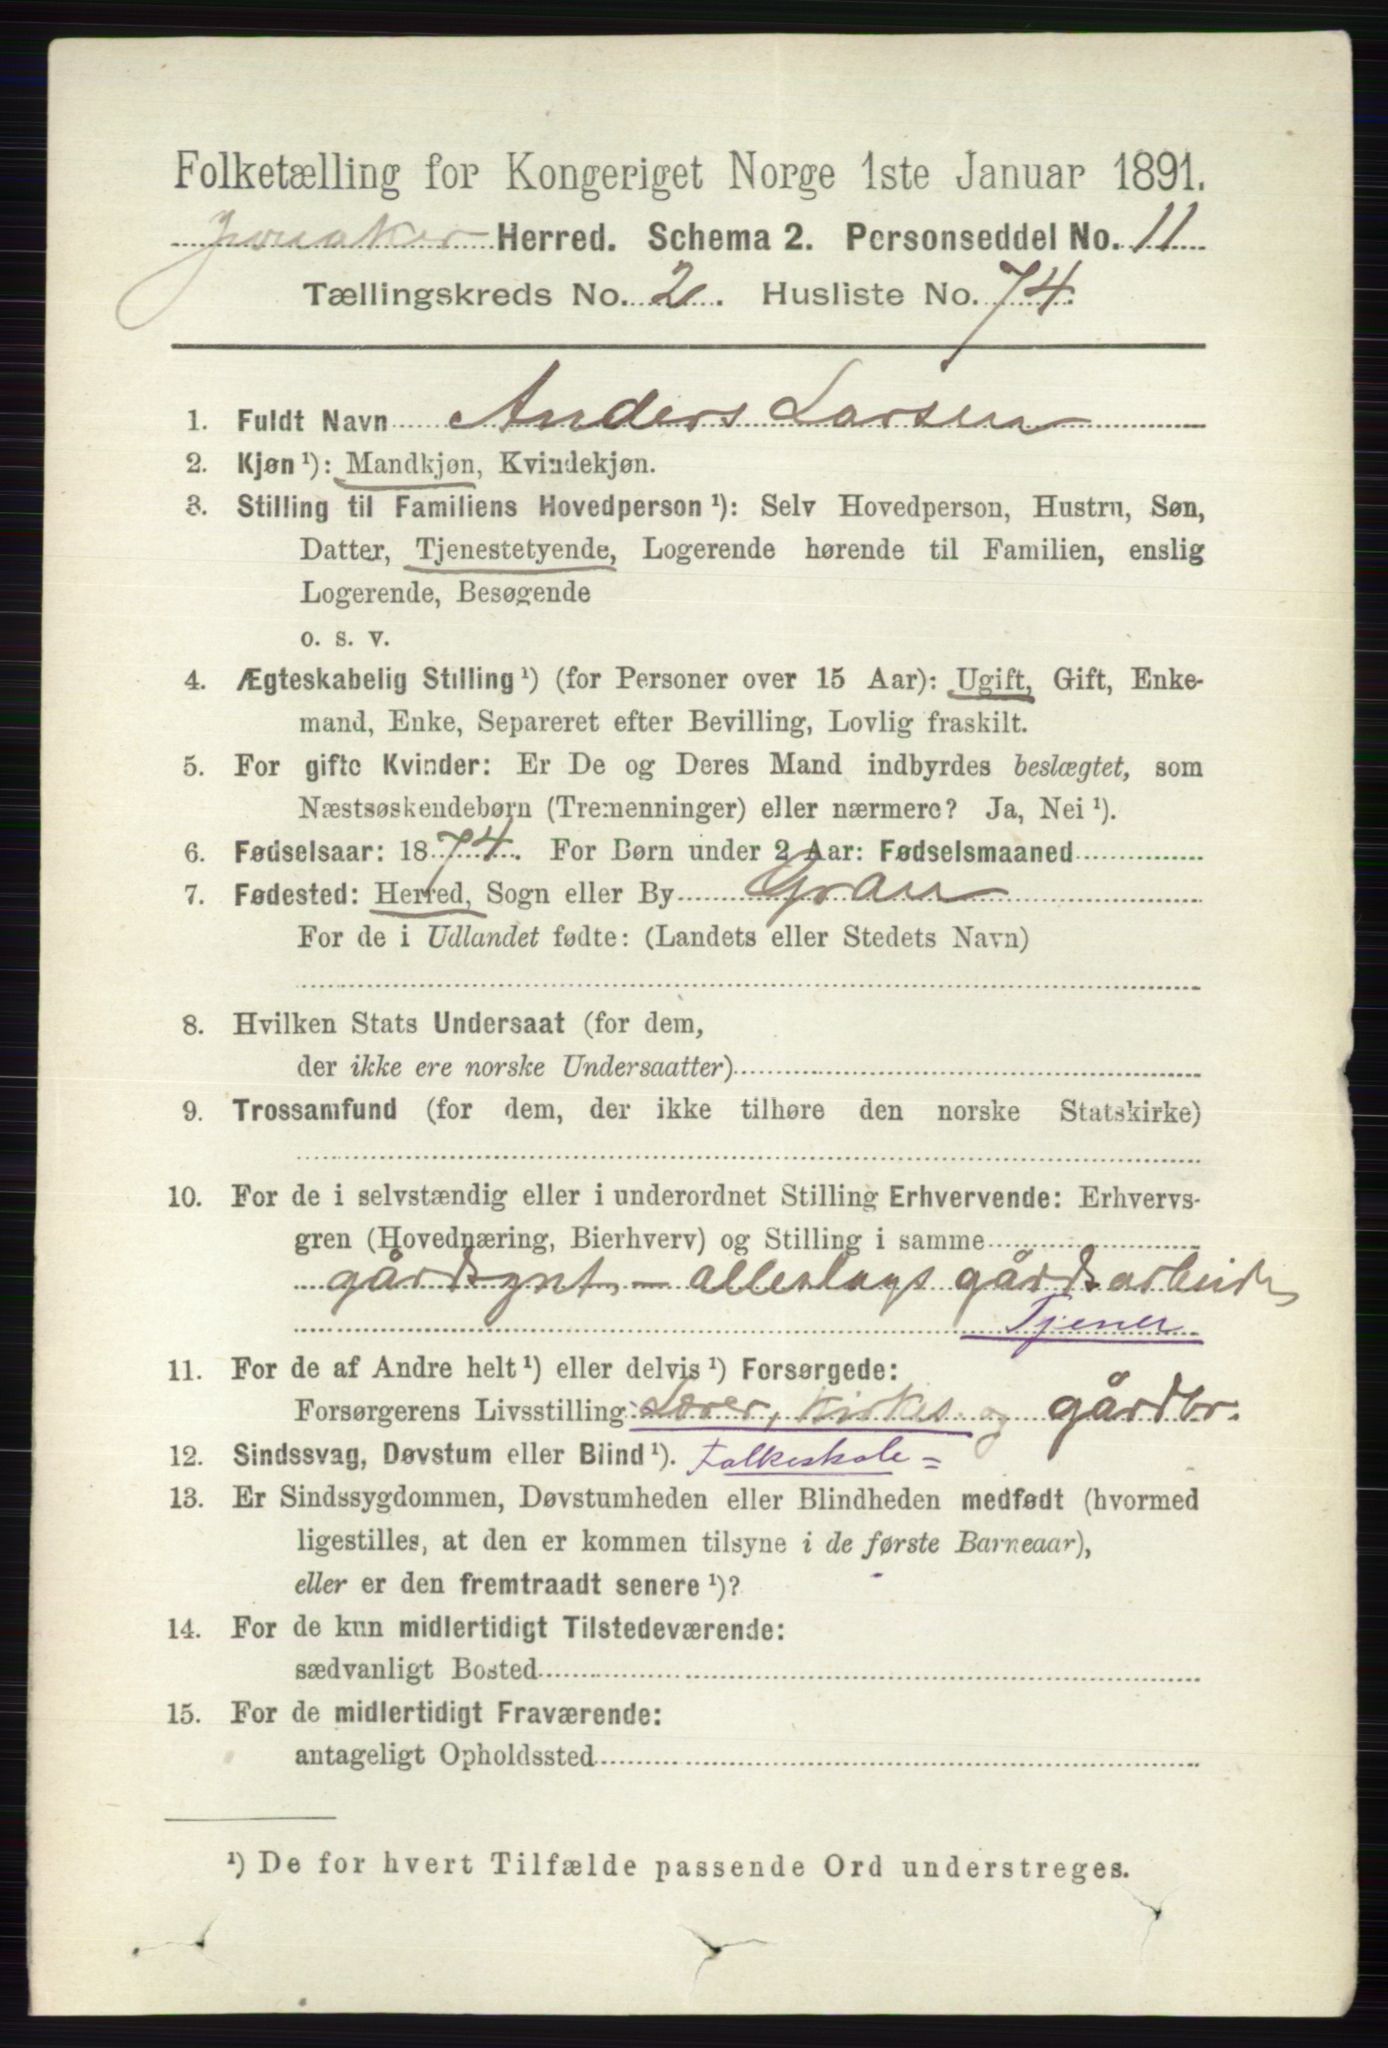 Folketælling for Kongeriget Norge 1ste Januar 1891.
Jevnaker Herred. Schema 2. Personseddel No. 11
Tællingskreds No. 2. Husliste No. 74.
1. Fuldt Navn Anders Larsen
2. Kjøn ¹): Mandkjøn, Kvindekjøn.
3. Stilling til Familiens Hovedperson ¹): Selv Hovedperson, Hustru, Søn,
Datter, Tjenestetyende, Logerende hørende til Familien, enslig
Logerende, Besøgende
o. s. v.
4. Ægteskabelig Stilling ¹) (for Personer over 15 Aar): Ugift, Gift, Enke-
mand, Enke, Separeret efter Bevilling, Lovlig fraskilt.
5. For gifte Kvinder: Er De og Deres Mand indbyrdes beslægtet, som
Næstsøskendebørn (Tremenninger) eller nærmere? Ja, Nei ¹).
6. Fødselsaar: 1874. For Børn under 2 Aar: Fødselsmaaned
7. Fødested: Herred, Sogn eller By Gran
For de i Udlandet fødte: (Landets eller Stedets Navn)
8. Hvilken Stats Undersaat (for dem,
der ikke ere norske Undersaatter)
9. Trossamfund (for dem, der ikke tilhøre den norske Statskirke)
10. For de i selvstændig eller i underordnet Stilling Erhvervende: Erhvervs-
gren (Hovednæring, Bierhverv) og Stilling i samme
gårdsgut, - alleslags gårdsarbeide
Tjener
11. For de af Andre helt ¹) eller delvis ¹) Forsørgede:
Forsørgerens Livsstilling: Lærer, Kirkes. og gårdbr.
12. Sindssvag, Døvstum eller Blind ¹). Folkeskole =
13. Er Sindssygdommen, Døvstumheden eller Blindheden medfødt (hvormed
ligestilles, at den er kommen tilsyne i de første Barneaar),
eller er den fremtraadt senere ¹)?
14. For de kun midlertidigt Tilstedeværende:
sædvanligt Bosted
15. For de midlertidigt Fraværende:
antageligt Opholdssted
¹) De for hvert Tilfælde passende Ord understreges.